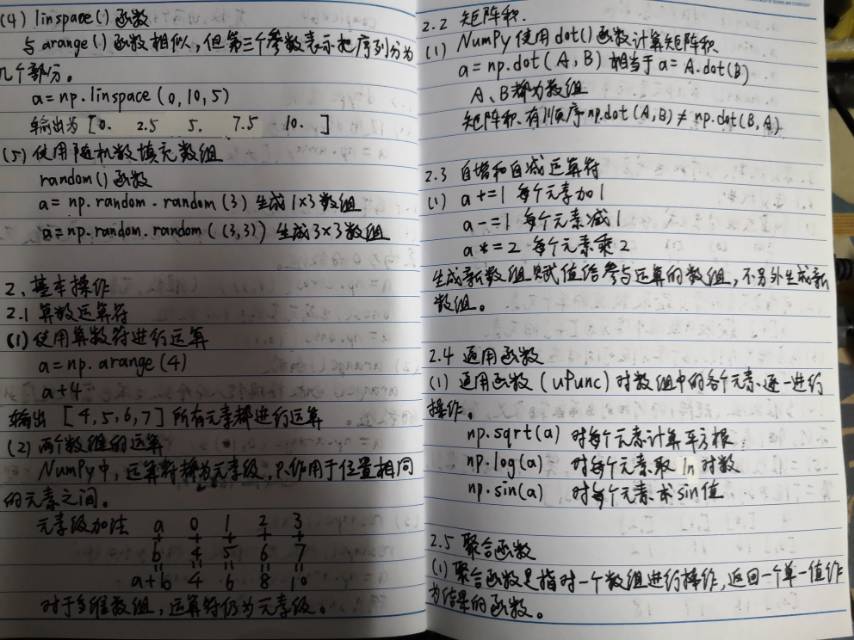 (4) linspace()函数
与arange()函数相似,但第三个参数表示把序列分为
几个部分。
a=np.linspace(0,10,5)
输出为[0. 2.5 5. 7.5 10. ]
(5)使用随机数填充数组
random()函数
a=np.random.random(3)生成1×3数组
a=np.random.random((3,3))生成3×3数组
2、基本操作
2.1 算数运算符
(1)使用算数符进行运算
a=np.arange(4)
a+4
输出[4,5,6,7]所有元素都进行运算
(2)两个数组的运算
NumPy中,运算符为元素级,只作用于位置相同
的元素之间。
元素级加法 a 0 1 2 3
+ + + + +
b 4 5 6 7
= = = = =
a+b 4 6 8 10
对于多维数组,运算符仍为元素级。
2.2 矩阵积.
(1) NumPy使用dot()函数计算矩阵积
a=np.dot(A,B)相当于a=A.dot(B)
A、B都为数组
矩阵积有顺序np.dot(A,B)≠np.dot(B,A)
2.3 自增和自减运算符
(1) a+=1 每个元素加1
a-=1 每个元素减1
a*=2 每个元素乘2
生成新数组赋值给参与运算的数组,不另外生成新
数组。
2.4 通用函数
(1)通用函数(ufunc)对数组中的各个元素逐一进行
操作。
np.sqrt(a) 对每个元素计算平方根
np.log(a) 对每个元素取ln对数
np.sin(a) 对每个元素求sin值
2.5 聚合函数
(1)聚合函数是指对一个数组进行操作,返回一个单一值作
为结果的函数。